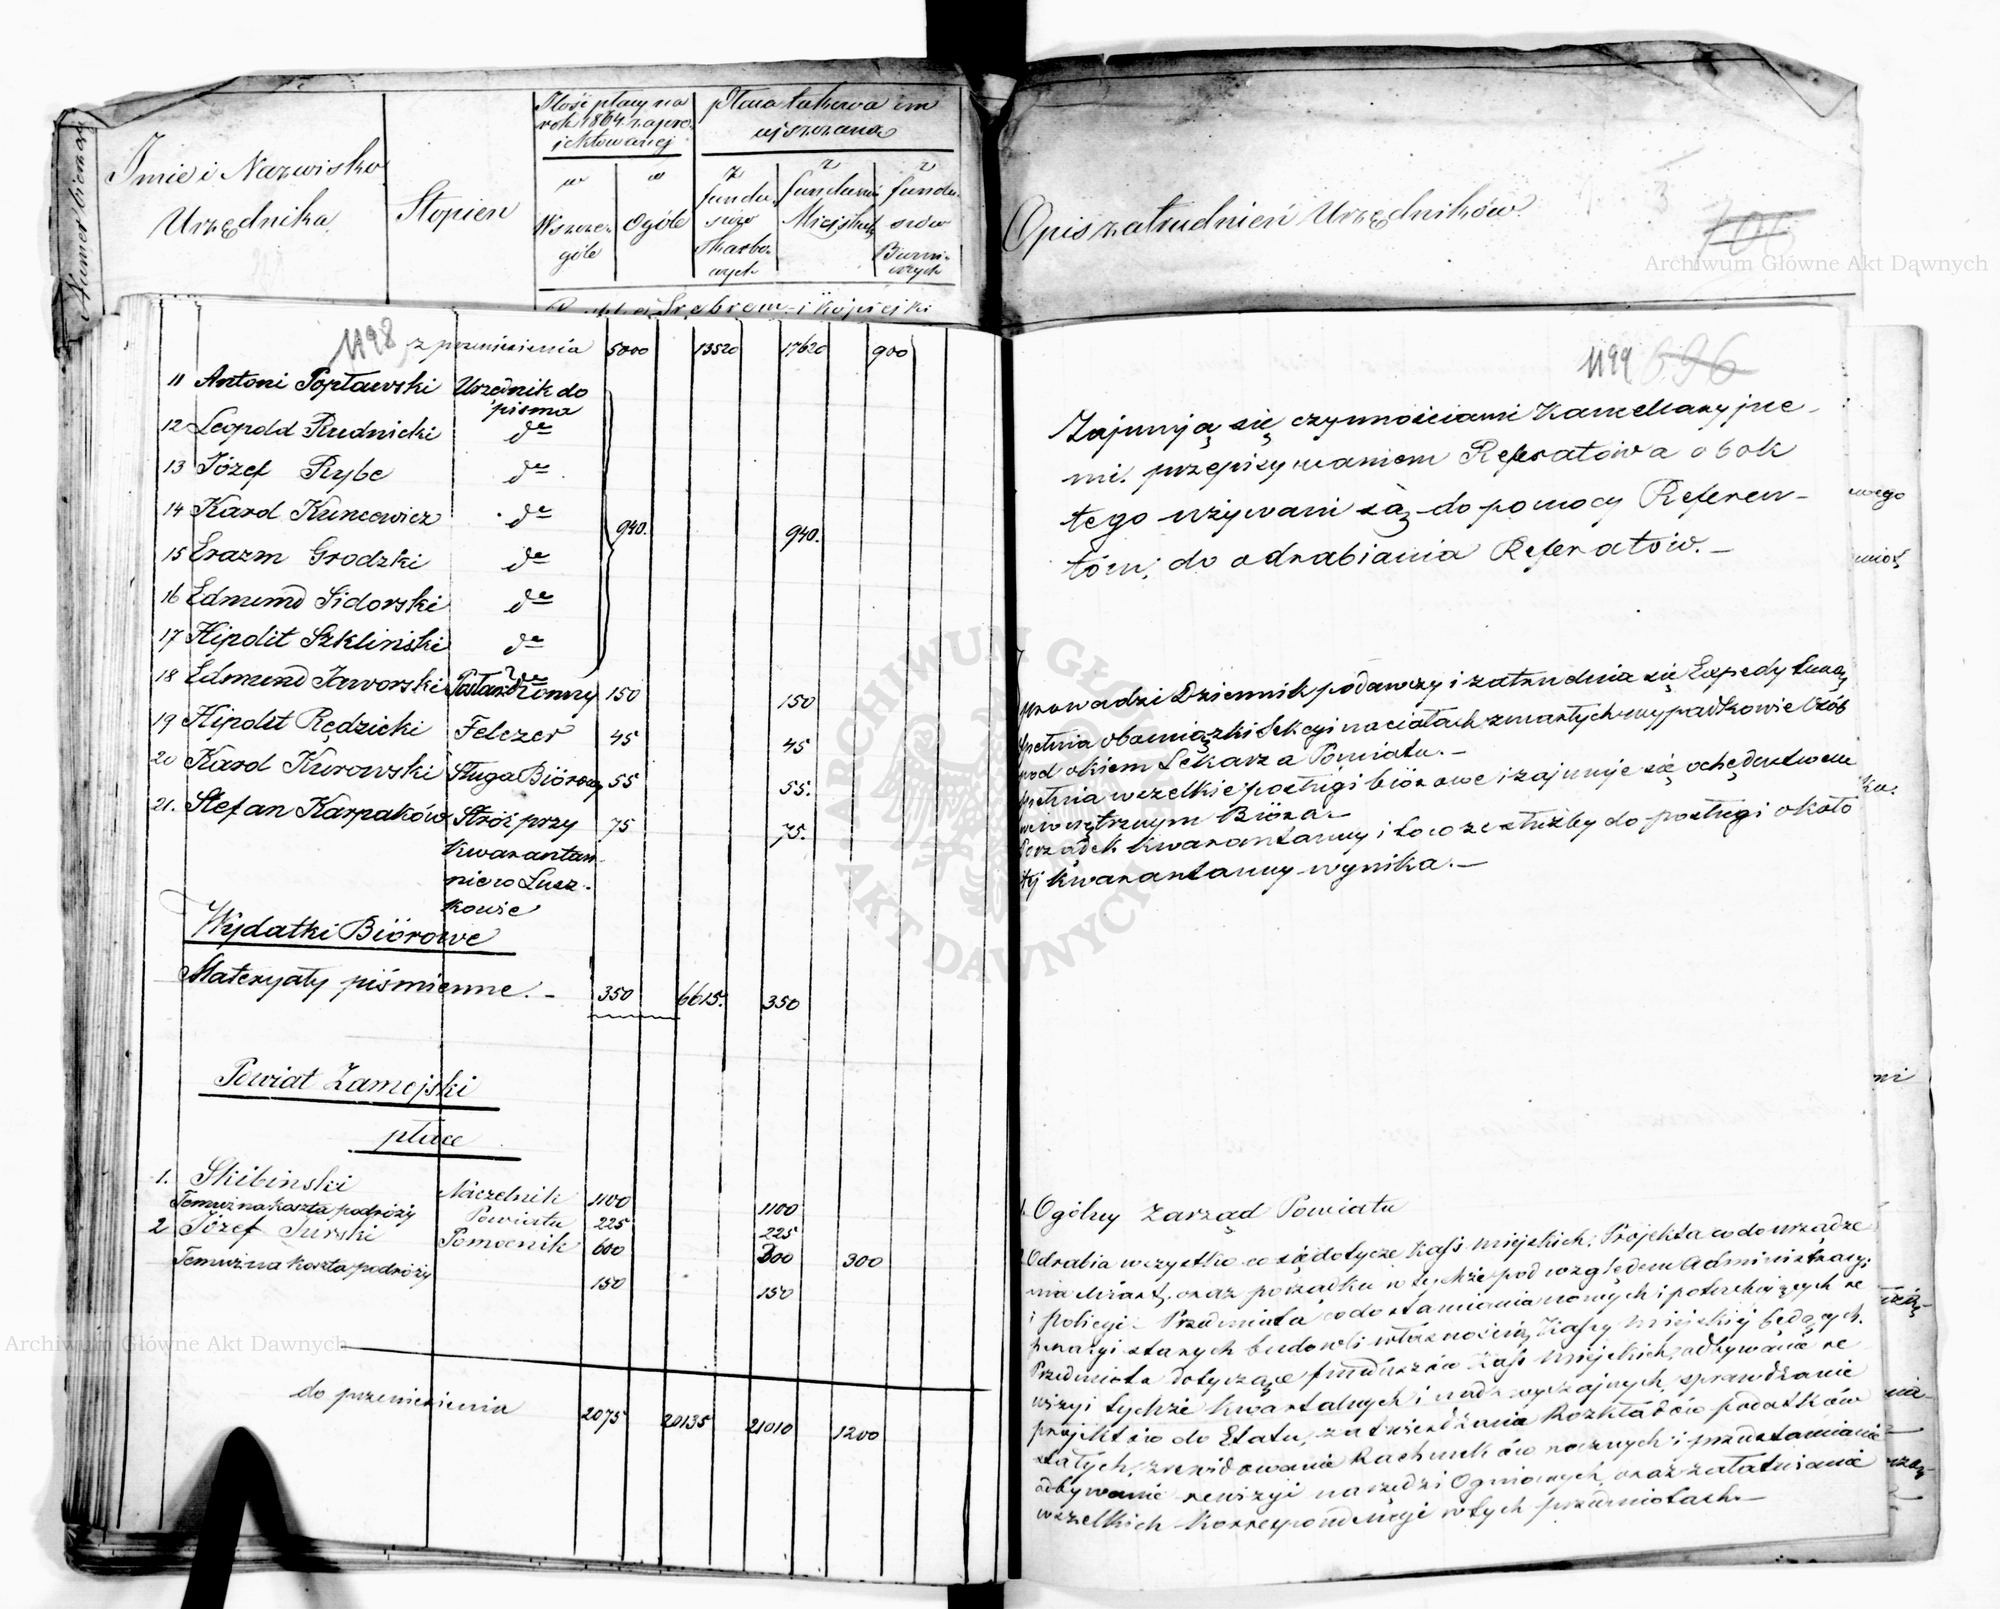 Numer bieżący
Imie i Nazwisko
Urzędnika
Stopień
Ilość płacy na
rok 1864 zapro-
jektowanej
w
Wszcze-
góle
w
Ogóle
płaca takowa im
z
fundu-
szów
Skarbo-
wych
z
funduszów
Miejskich
z
fundu-
szów
Opis zatrudnień Urzędników.
706
Archiwum Główne Akt Dawnych
Srebrem i Kopiejki
1198 z przeniesienia 5000 13520 17620 900
11 Antoni Popławski Urzędnik do
pisma
12 Leopold Rudnicki do
13 Józef Rybe do
14 Karol Kuncewicz do 940. 940.
15 Erazm Grodzki do
16 Edmund Sidorski do
17 Hipolit Szkliński do
18 Edmund Jaworski 150 150
19 Hipolit Rędzicki Felczer 45 45
20 Karol Kurowski Sługa Biórowy 55 55.
21. Stefan Karpaków Stróż przy 75 75.
Kwarantan-
nie w Łusz-
kowie
Wydatki Biórowe
Materyały piśmienne. - 350 6615. 350
Powiat Zamojski
płace
1. Skibinski Naczelnik 1100 1100
Temuż na koszta podróży Powiatu 225 225
2 Józef Turski Pomocnik 600 300 300
Temuż na koszta podróży 150 150
Archiwum Główne Akt Dawnych
do przeniesienia 2075 20135 21010 1200
1199 696
Zajmują się czynnościami Kancellaryjne-
mi. przepisywaniem Referatów a obok
tego używani są do pomocy Referen-
tom, do odrabiania Referatów. -
prowadzi Dziennik podawczy i zatrudnia się Expedyturą
pełnia obowiązki Sekcyi na ciałach zmarłych wypadkowie Osób
pod okiem Lekarza Powiatu. -
pełnia wszelkie posługi biórowe i zajmuje się ochędostwem
wewnętrznym Bióra. -
kwarantanny i to co ze służby do posługi około
tej kwarantanny wynika. -
1. Ogólny Zarząd Powiatu
Odrabia wszystko co się dotycze Kass Miejskich; Projekta co do urządze
nia Miast, oraz porządku w tychże pod względem Administracyi
i policyi - Przedmiota co do stawiania nowych i potrzebujących re
peracyi starych budowli własnością Kassy Miejskiej będących.
Przedmiota dotyczące funduszów Kass Miejskich, odbywanie re
wizyi tychże kwartalnych i nadzwyczajnych, sprawdzanie
projektów do Etatu, zatwierdzanie Rozkładów podatków
stałych, zrewidowanie Rachunków rocznych i przedstawianie
odbywanie rewizyi narzędzi Ogniowych, oraz załatwianie
wszelkich Korrespondencyi w tych przedmiotach. -
ARCHIWUM GŁÓWNE AKT DAWNYCH